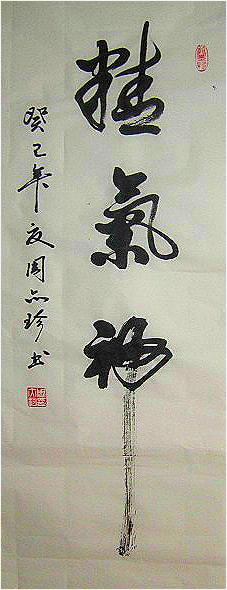 精氣神
癸巳年夏周品珍书